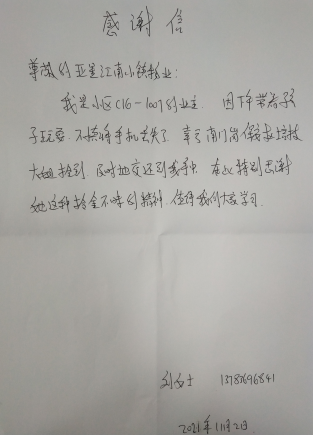 感谢信
尊敬的亚星江南小镇物业：
我是小区C16-1007的业主 因下午带着孩
子玩耍 不慎将手机丢失了 幸亏南门岗
大姐捡到 及时地交还到我手中 在此特别感谢
她这种拾金不昧的精神 值得我们大家学习
刘女士 13787696841
2021年11月2日